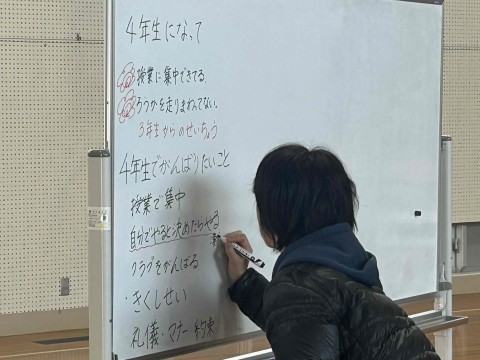 4年生になって
授業に集中できてる。
ろうかを走りまわってない。
3年生からのせいちょう
4年生でがんばりたいこと
授業で集中
自分でやると決めたらやる
クラブをがんばる
・きくしせい
礼儀・マナー 約束